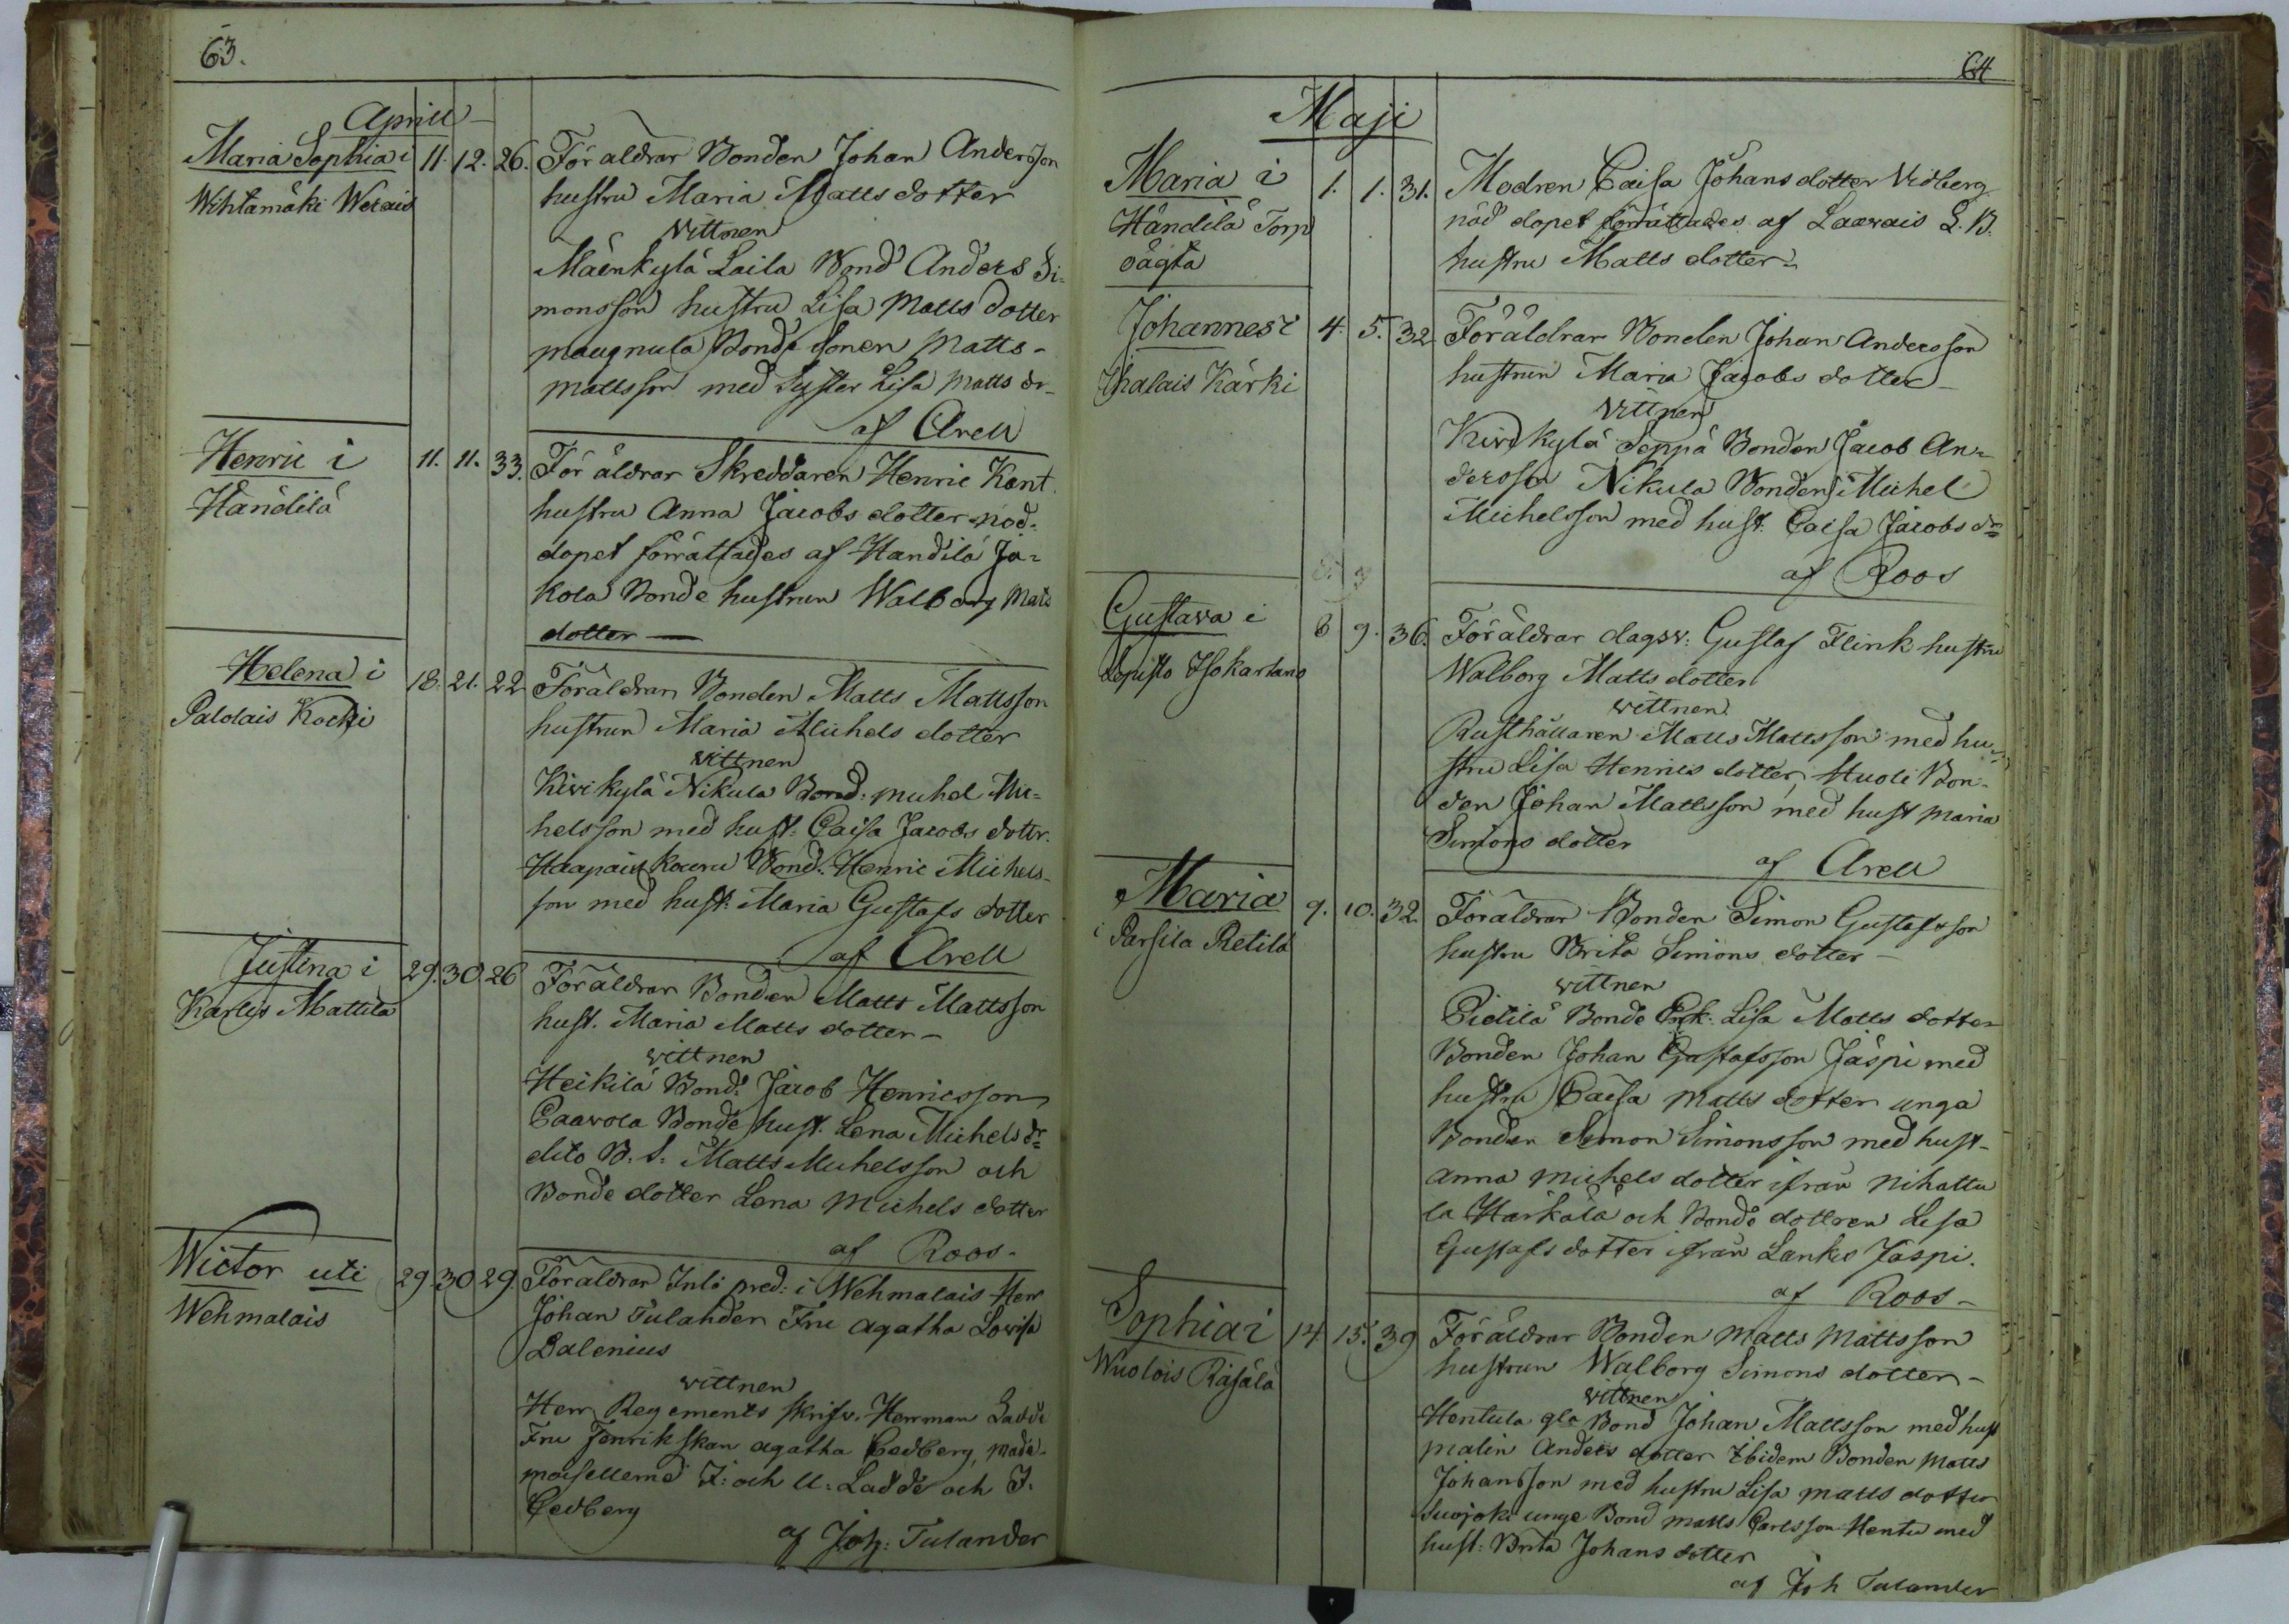 63.
Aprill
Maria Sophia i 11. 12. 26. Föräldrar Bonden Johan Andersson
Wihtamäki Werais hustru Maria Matts dotter
Vittnen
Mäenkylä Laila Bond Anders Si-
monsson hustru Lisa Matts dotter
Maugnula Bonde sonen Matts
Mattsson med Syster Lisa Matts dr
af Arell
Henric i 11. 11. 33. Föräldrar Skreddaren Henric Kant
Händilä hustru Anna Jacobs dotter nöd-
dopet förrättades af Handilä Ja-
kola Bonde hustrun Walborg Mats
dotter —
Helena i 18. 21. 22 Föräldrar Bonden Matts Mattsson
Paldais Kocki hustrun Maria Michels dotter
vittnen
Kivikylä Nikula Bond: Michel Mic-
helsson med hust: Caisa Jacobs dottr.
Haapais Kouru Bond: Henric Michels-
son med hust: Maria Gustafs dotter
af Arell
Justina i 29. 30. 26 Föräldrar Bonden Matts Mattsson
Karlys Mattila hust. Maria Matts dotter —
vittnen
Heikilä Bond: Jacob Henricsson
Paavola Bonde hust. Lena Michels dr
dito B. S. Matts Michelsson och
Bonde dotter Lena Michels dotter
af Roos -
Wictor uti 29. 30 29. Föräldrar pred: i Wehmalais Herr
Wehmalais Johan Tulander Fru Agatha Lovisa
Dalenius
vittnen
Herr Regements skrifv. Herman Ladde
Fru Fenrikskan Agatha Cedberg, Made-
moisellerne J: och U: Ladde och J.
Cedberg
af Joh: Tulander
64
Maji
Maria i 1. 1. 31. Modren Caisa Johans dotter Vidberg
Händilä Torp nöd dopet förrättades af Laawais L. B.
oägta hustru Matts dotter
Johannes i 4. 5. 32 Föräldrar Bonden Johan Andersson
Ihalais Kärki hustrun Maria Jacobs dotter
Vittnen
Kivikylä Seppä Bonden Jacob An-
dersson Nikula Bonden Michel
Michelsson med hust. Caisa Jacobs dr
af Roos
Gustava i 8 9. 36. Föräldrar dagsv: Gustaf Flink hustru
Lopisto Isokartano Walborg Matts dotter
vittnen
Rusthållaren Matts Mattsson med hu-
stru Lisa Henrics dotter, Huoli Bon-
den Johan Mattsson med hust Maria
Simons dotter
af Arell
Maria 9. 10. 32 Föräldrar Bonden Simon Gustafsson
i Parsila Retilä hustru Brita Simons dotter —
vittnen
Pietilä Bonde Enk: Lisa Matts dotter
Bonden Johan Gustafsson Jäspi med
hustru Caisa Matts dotter unga
Bonden Simon Simonsson med hust-
Anna Michels dotter ifrån Nihattu
la Härkälä och Bonde dottren Lisa
Gustafs dotter ifrån Lanko Jäspi.
af Roos -
Sophia i 14 15. 39 Föräldrar Bonden Matts Mattsson
Wuolois Räsälä hustrun Walborg Simons dotter —
vittnen
Hentula gla Bond Johan Mattsson med hust
Malin Anders dotter Ibidem Bonden Matts
Johansson med hustru Lisa Matts dotter
Suojoki unge Bond Matts Carlsson Hentu med
hust: Brita Johans dotter
af Joh Tulander